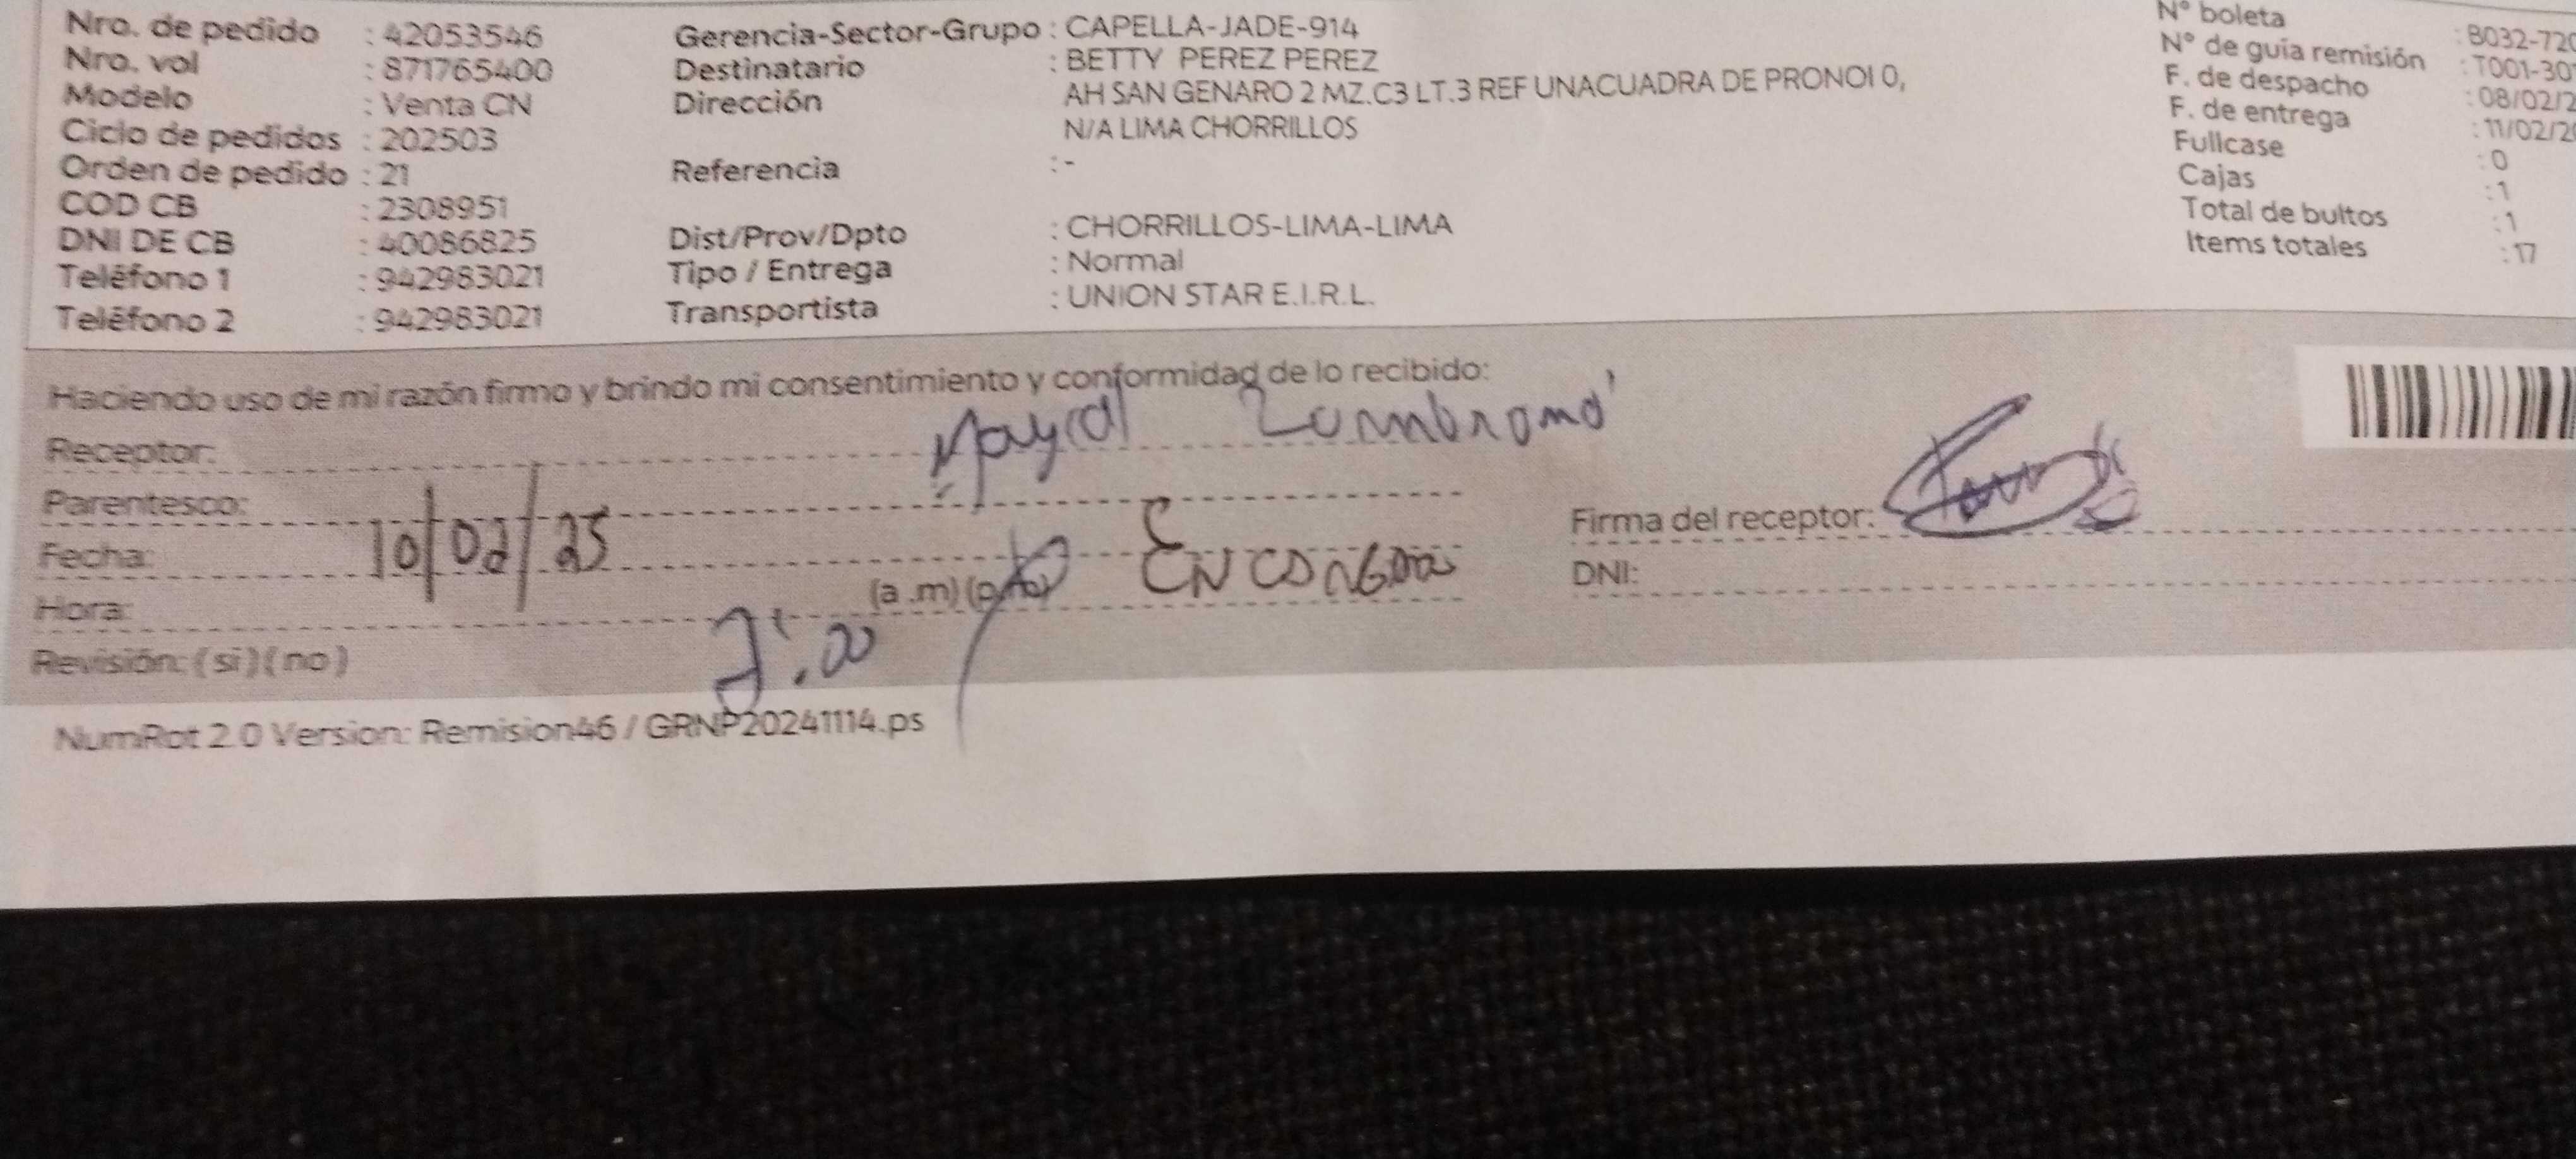 Nro. de pedido : 42053546
Nro. vol : 871765400
Modelo : Venta CN
Ciclo de pedidos : 202503
Orden de pedido : 21
COD CB : 2308951
DNI DE CB : 40086825
Teléfono 1 : 942983021
Teléfono 2 : 942983021
Gerencia-Sector-Grupo : CAPELLA-JADE-914
Destinatario : BETTY PEREZ PEREZ
Dirección AH SAN GENARO 2 MZ.C3 LT.3 REF UNACUADRA DE PRONOI 0,
N/A LIMA CHORRILLOS
Referencia : -
Dist/Prov/Dpto : CHORRILLOS-LIMA-LIMA
Tipo / Entrega : Normal
Transportista : UNION STAR E.I.R.L.
N° boleta : B032-720
N° de guía remisión : T001-30
F. de despacho : 08/02/2
F. de entrega : 11/02/20
Fullcase : 0
Cajas : 1
Total de bultos : 1
Items totales : 17
Haciendo uso de mi razón firmo y brindo mi consentimiento y conformidad de lo recibido:
Receptor:
Parentesco:
Fecha: 10/02/25
Hora: (a .m) (p.m)
Revisión: ( si ) ( no )
Firma del receptor:
DNI:
NumRot 2.0 Version: Remision46 / GRNP20241114.ps